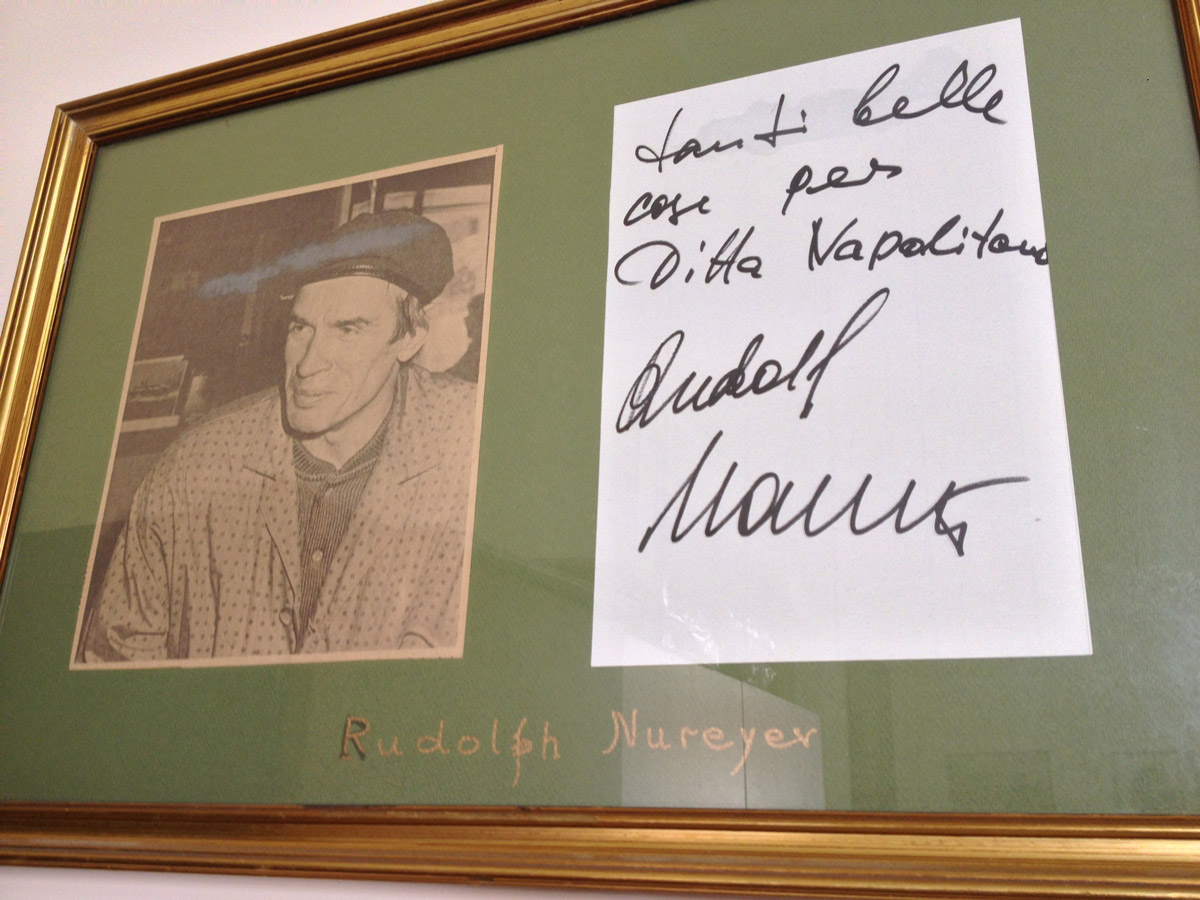 tanti belle
cose per
Ditta Napolitano
Rudolf
Rudolph Nureyer